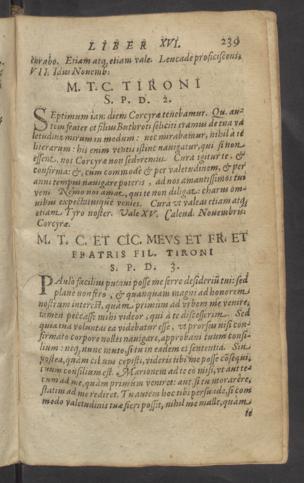 LIBER XVI. 239
curabo. Etiam atq, etiam vale. Leucade proficiscens.
VII. Idus Novemb:
M. T. C. TIRONI
S. P. D. 2.
SEptimum iam diem Corcyræ tenebamur. Qu. au-
tem pater et filius Buthroti. soliciti eramus de tua va
letudine mirum in modum: nec mirabamur, nihil à te
literarum: his enim ventis istinc navigatur, qui si non
essent, nos Corcyræ non sederemus. Cura igitur te, &
confirma: &, cum commodè & per valetudinem, & per
anni tempus navigare poteris, ad nos amantissimos tui
veni. Nemo nos amat, qui te non diligat: charus om-
nibus expectatusque venies. Cura vt valeas etiam atq,
etiam Tyro noster. Vale XV. Calend. Novembris:
Corcyræ.
M. T. C. ET CIC. MEVS ET FR. ET
FRATRIS FIL. TIRONI
S. P. D. 3.
PAulo facilius putavi posse me ferre desiderium tui: sed
planè non fero, & quanquam magni ad honorem
nostrum interest, quàm primum ad vrbem me venire,
tamen peccasse mihi videor, qui à te discesserim. Sed
quia tua voluntas ea videbatur esse, vt prorsus nisi con-
firmato corpore nolles navigare, approbavi tuum consi-
lium: neq, nunc muto, si tu in eadem es sententia. Sin
postea, quàm cibum cepisti, videris tibi me posse cõsequi,
tuum consilium est. Marionem ad te eò misi, vt aut te-
cum ad me, quàm primum veniret: aut, si tu morarêre,
statim ad me rediret. Tu autem hoc tibi persuade, si com
modo valetudinis tuæ fieri possit, nihil me malle, quàm
te